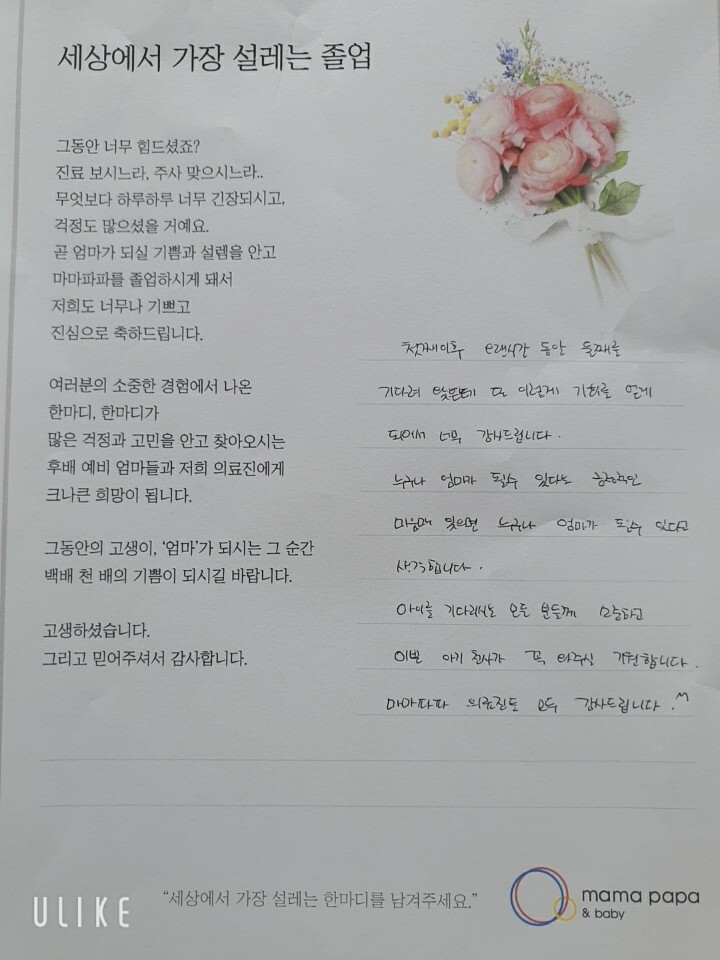 세상에서 가장 설레는 졸업
그동안 너무 힘드셨죠?
진료 보시느라, 주사 맞으시느라..
무엇보다 하루하루 너무 긴장되시고,
걱정도 많으셨을 거예요.
곧 엄마가 되실 기쁨과 설렘을 안고
마마파파를 졸업하시게 돼서
저희도 너무나 기쁘고
진심으로 축하드립니다.
여러분의 소중한 경험에서 나온
한마디, 한마디가
많은 걱정과 고민을 안고 찾아오시는
후배 예비 엄마들과 저희 의료진에게
크나큰 희망이 됩니다.
그동안의 고생이, ‘엄마’가 되시는 그 순간
백배 천 배의 기쁨이 되시길 바랍니다.
고생하셨습니다.
그리고 믿어주셔서 감사합니다.
첫째이후 오랜시간 동안 둘째를
기다려 왔는데 또 이렇게 기회를 얻게
되어서 너무 감사드립니다.
누구나 엄마가 될수 있다는 긍정적인
마음만 있으면 누구나 엄마가 될수 있다고
생각합니다.
아이를 기다리시는 모든 분들께 소중하고
이쁜 아기 천사가 꼭 와주실 기원합니다.
마마파파 의료진도 모두 감사드립니다.^^
“세상에서 가장 설레는 한마디를 남겨주세요.”
mama papa
& baby
ULIKE